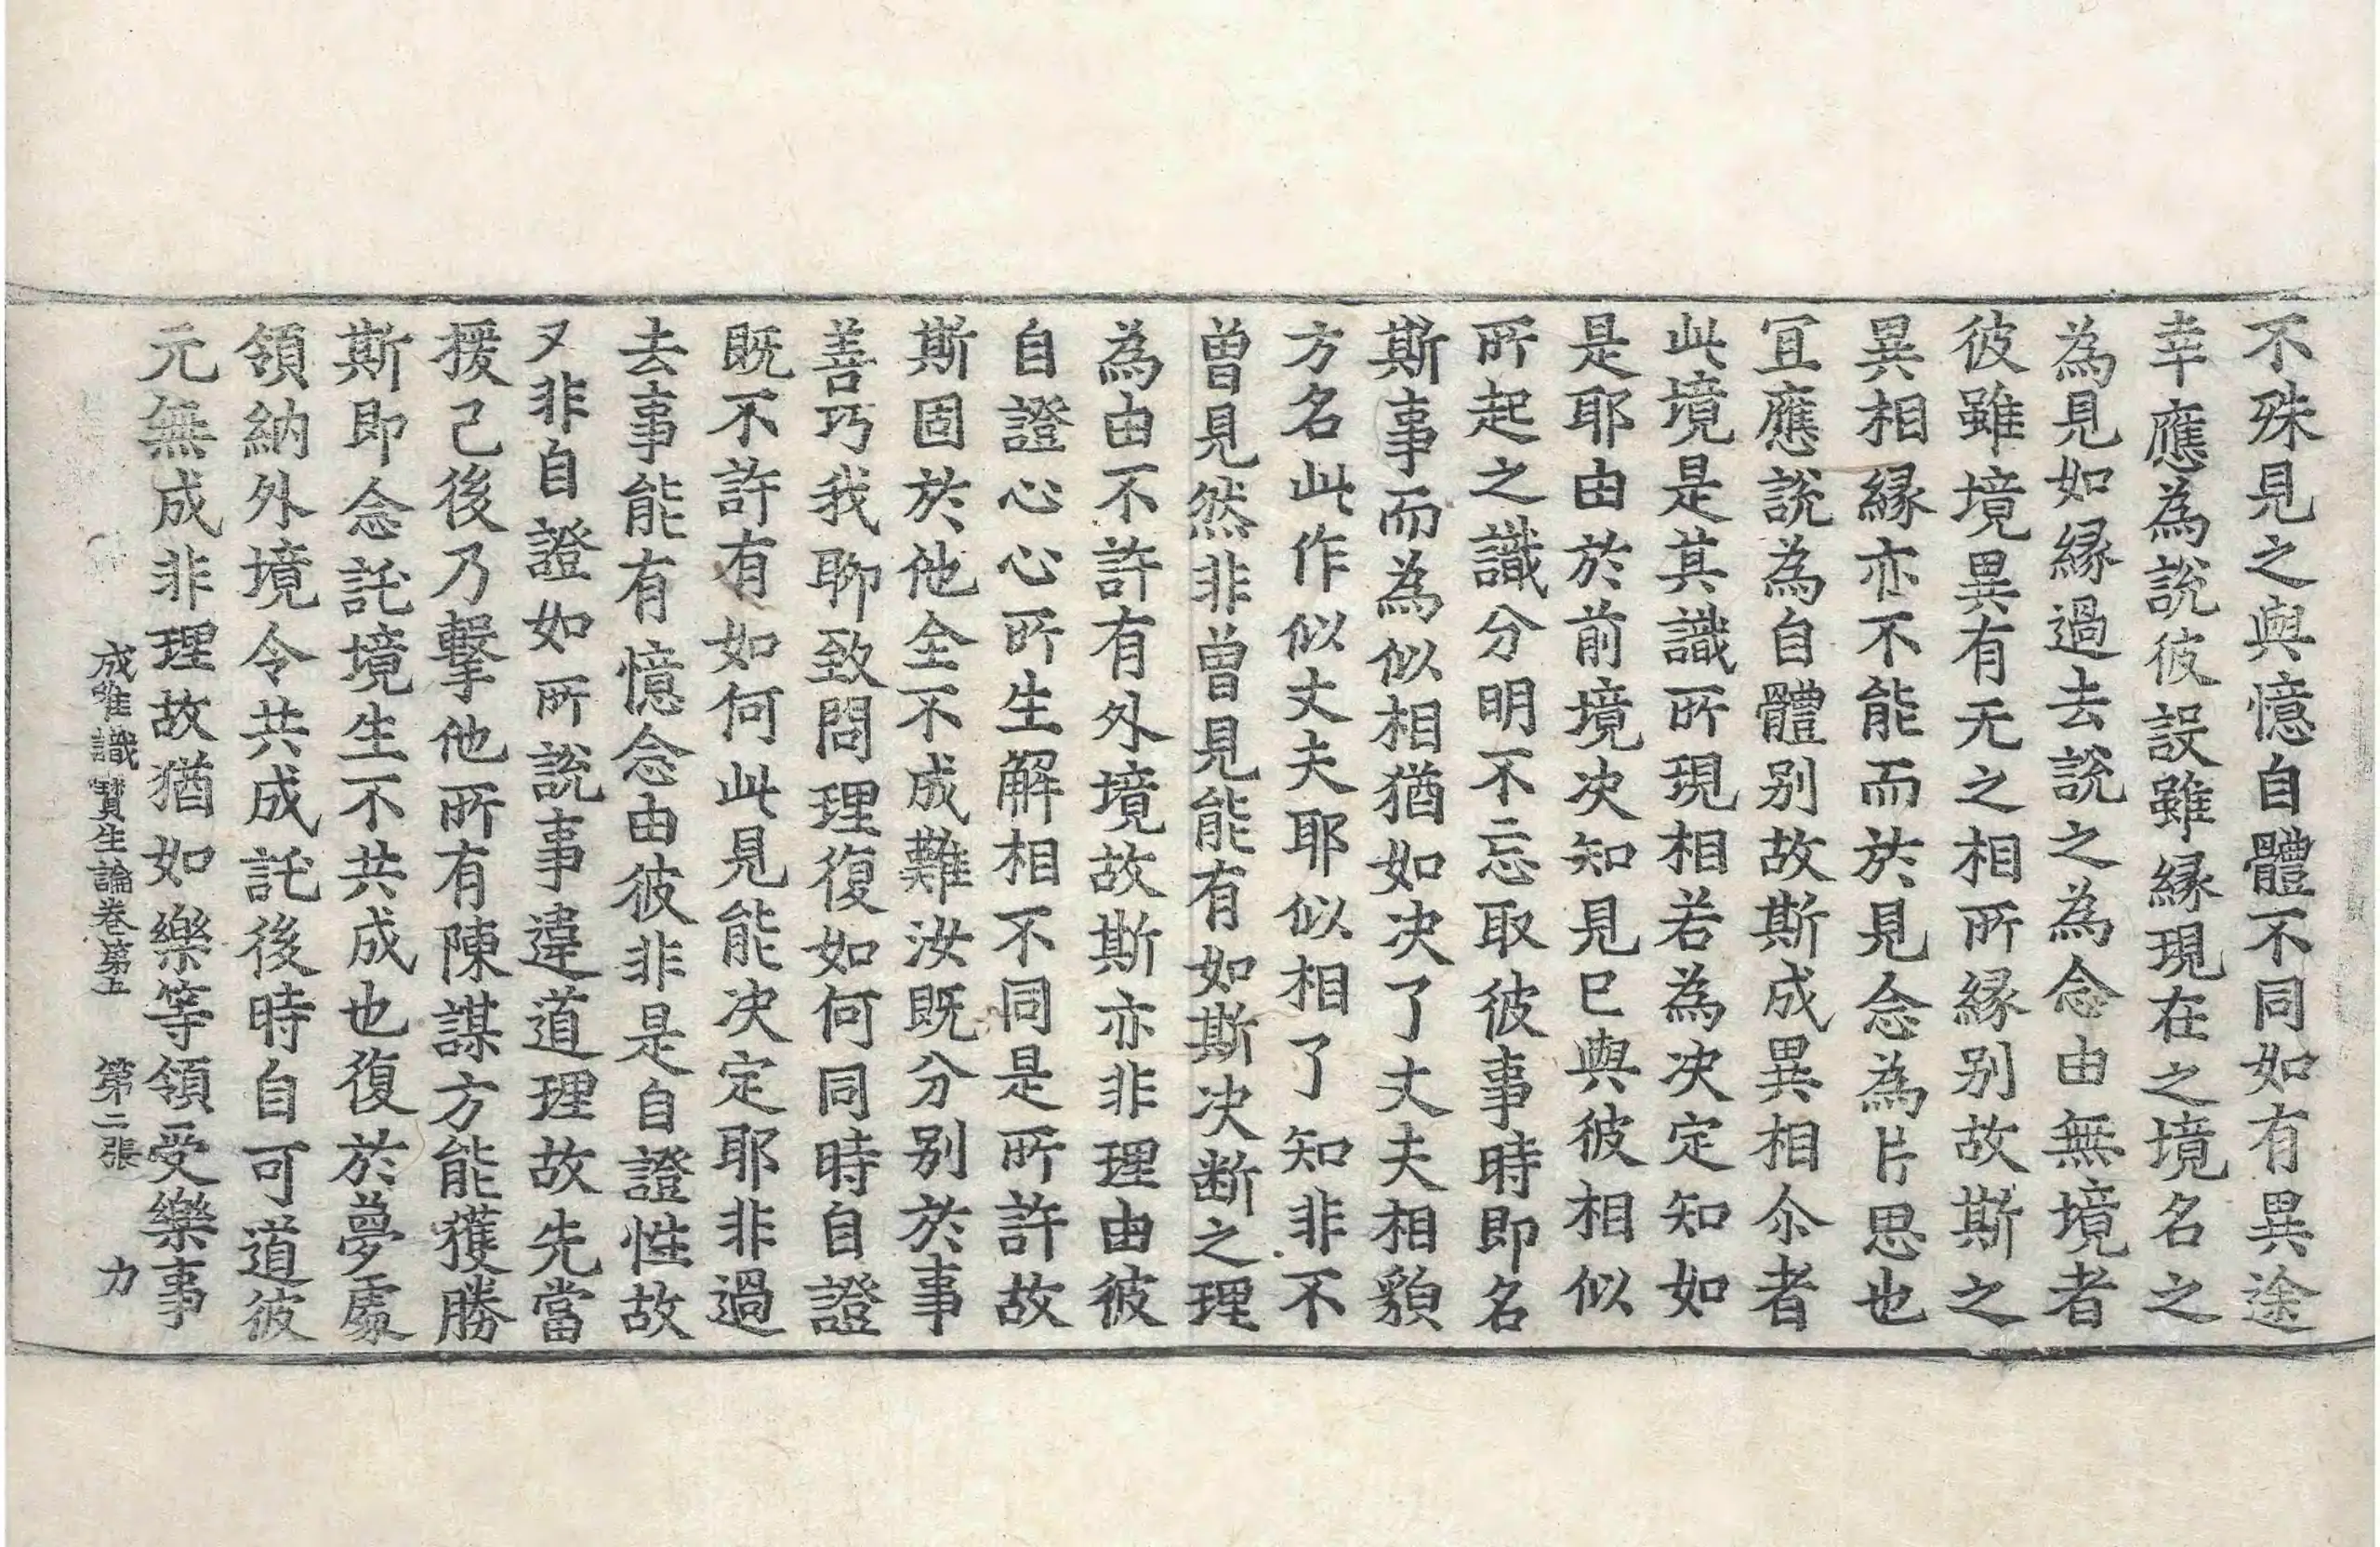 不殊見之與憶自體不同如有異途
幸應為說彼設雖緣現在之境名之
為見如緣過去說之為念由無境者
彼雖境異有无之相所緣别故斯之
異相緣亦不能而於見念為片思也
冝應說為自體别故斯成異相尒者
此境是其識所現相若為决定知如
是耶由於前境决知見已與彼相似
所起之識分明不忘取彼事時即名
斯事而為似相猶如决了丈夫相貌
方名此作似丈夫耶似相了知非不
曾見然非曾見能有如斯决断之理
為由不許有外境故斯亦非理由彼
自證心心所生解相不同是所許故
斯固於他全不成難汝既分别於事
善巧我聊致問理復如何同時自證
既不許有如何此見能决定耶非過
去事能有憶念由彼非是自證性故
又非自證如所說事違道理故先當
援己後乃擊他所有陳謀方能獲勝
斯即念託境生不共成也復於夢處
領納外境令共成託後時自可道彼
元無成非理故猶如樂等領受樂事
成唯識寶生論卷第五　第二張　力